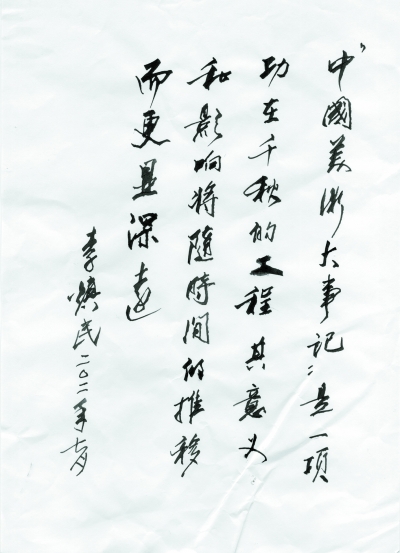 "中國美術大事記"是一项
功在千秋的工程其意义
和影响将隨時間的推移
而更显深远
李焕民二〇一一年